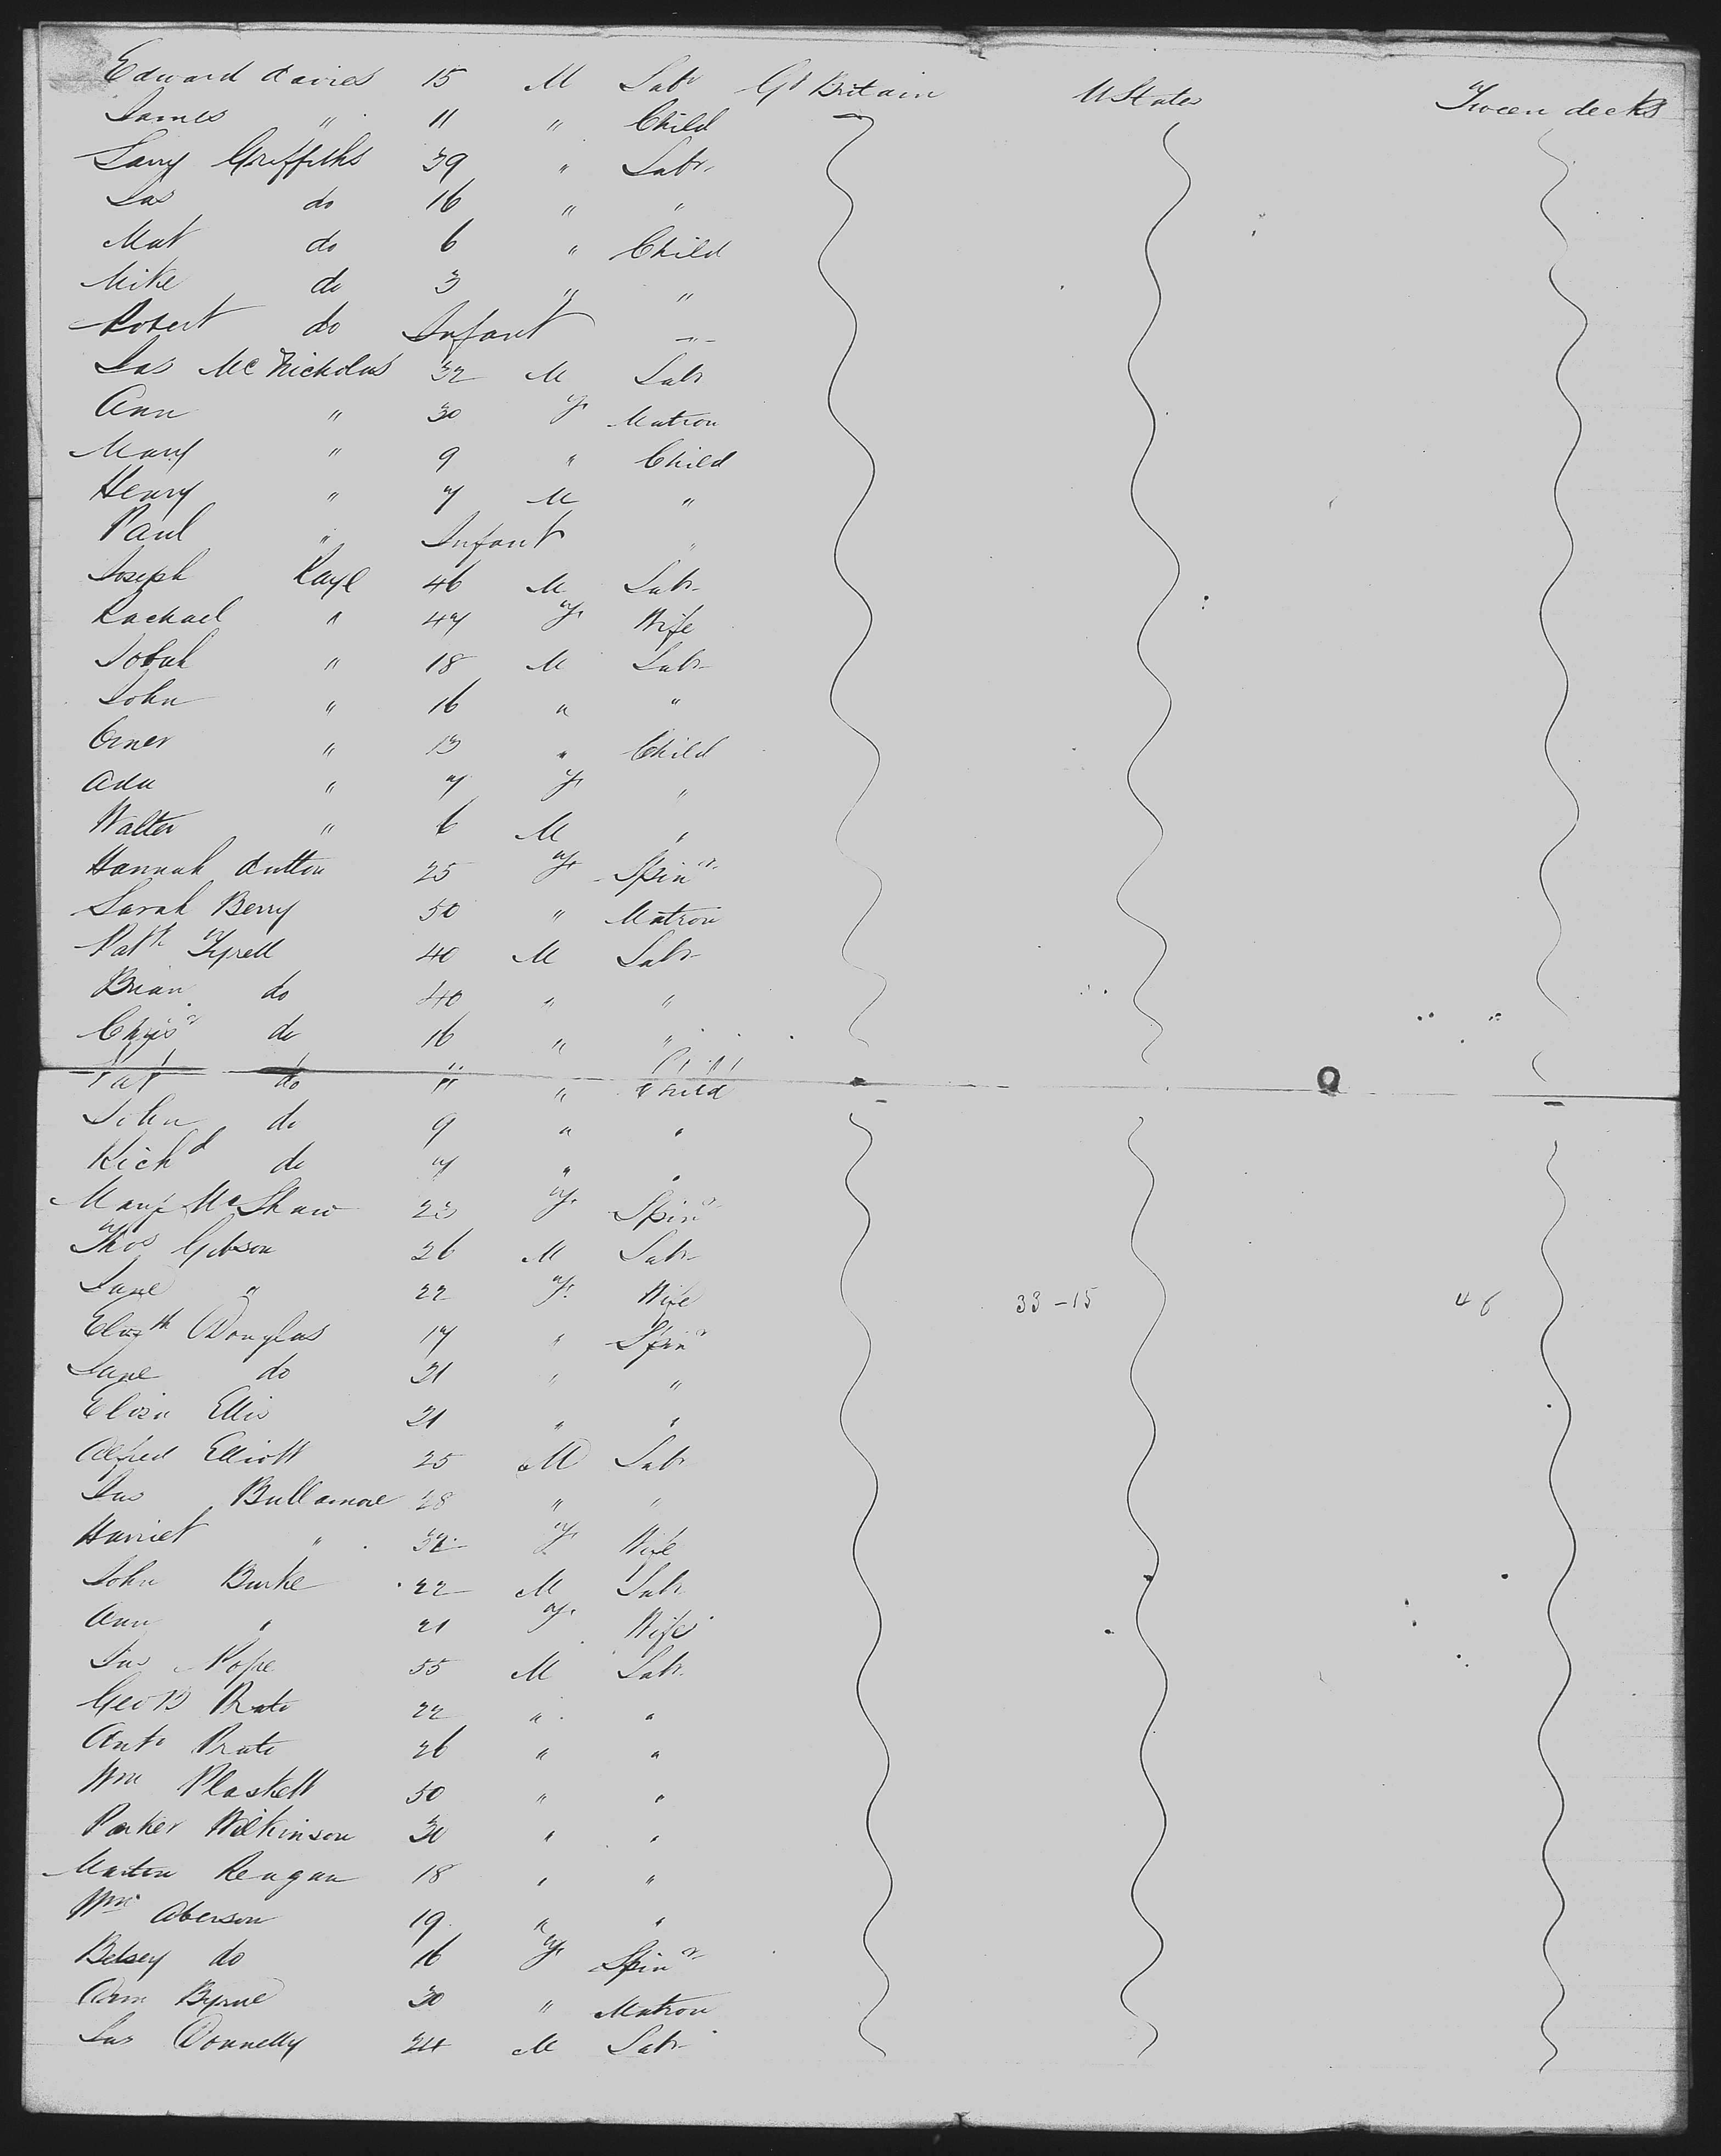 Edward Davies 15 M Labr Gt Britain U States Tween decks
James " 11 " Child
Larry Griffiths 39 " Labr
Jas do 16 " "
Mat do 6 " Child
Mike do 3 " "
Robert do Infant "
Jas McNicholas 32 M Labr
Ann " 30 F Matron
Mary " 9 " Child
Henry " 7 M "
Paul " Infant "
Joseph Kaye 46 M Labr
Rachael " 47 F Wife
" 18 M Labr
John " 16 " "
" 13 " Child
Ada " 7 F "
Walter " 6 M "
Hannah Dutton 25 F Spinr
Sarah Berry 50 " Matron
Patk Tyrell 40 M Labr
Brian do 40 " "
Chrisr do 16 " "
Pat do 11 " Child
John do 9 " "
Richd do 7 " "
Mary McShaw 23 F Spinr
Thos Gibson 26 M Labr
Jane " 22 F Wife 33-15 46
Elizth Douglas 17 " Spinr
Jane do 21 " "
Eliza Ellis 21 " "
Alfred Elliott 25 M Labr
Jas Bullamore 28 " "
Harriet " 32 F Wife
John Burke 22 M Labr
Ann " 21 F Wife
Jas Pope 55 M Labr
Geo B Prato 22 " "
Anto Prato 26 " "
Wm Plaskett 50 " "
Parker Wilkinson 30 " "
Martin Reagan 18 " "
Wm Aberson 19 " "
Betsey do 16 F Spinr
Ann Byrne 30 " Matron
Jas Donnelly 24 M Labr